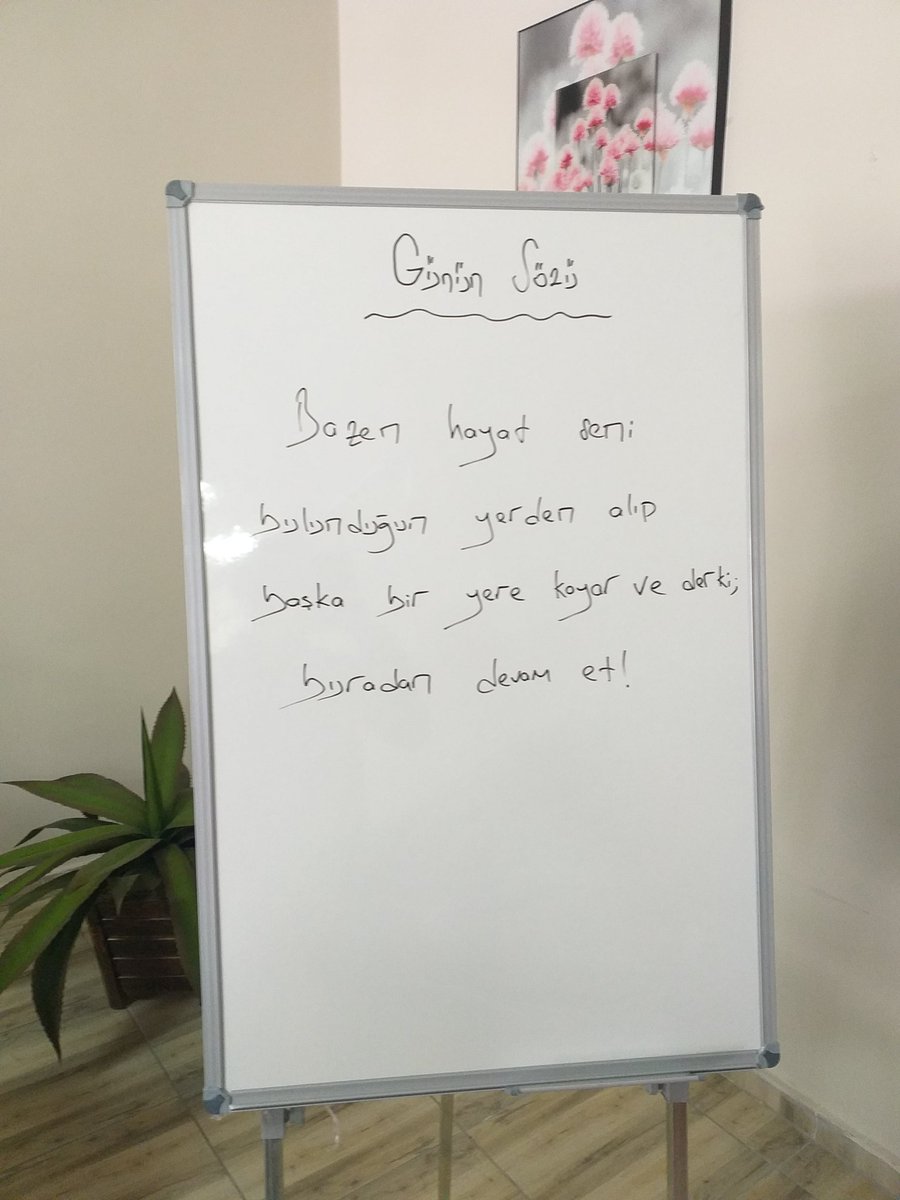 Günün Sözü
Bazen hayat seni
bulunduğun yerden alıp
başka bir yere koyar ve derki;
buradan devam et!